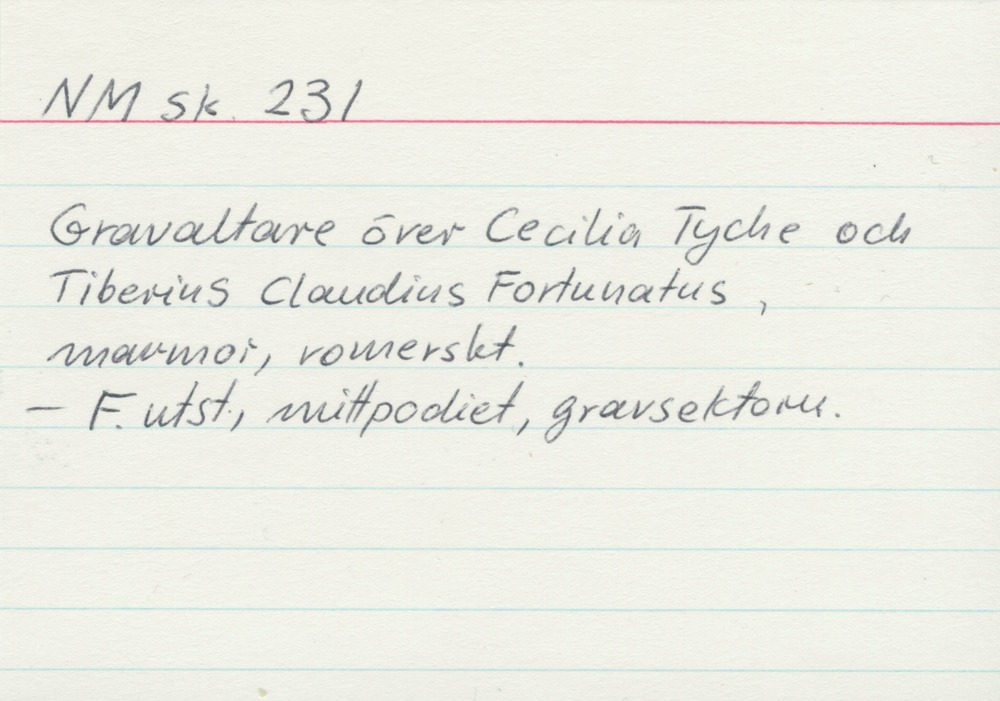 NM sk. 231
Gravaltare över Cecilia Tyche och
Tiberius Claudius Fortunatus,
marmor, romerskt.
– F. utst., mittpodiet, gravsektorn.